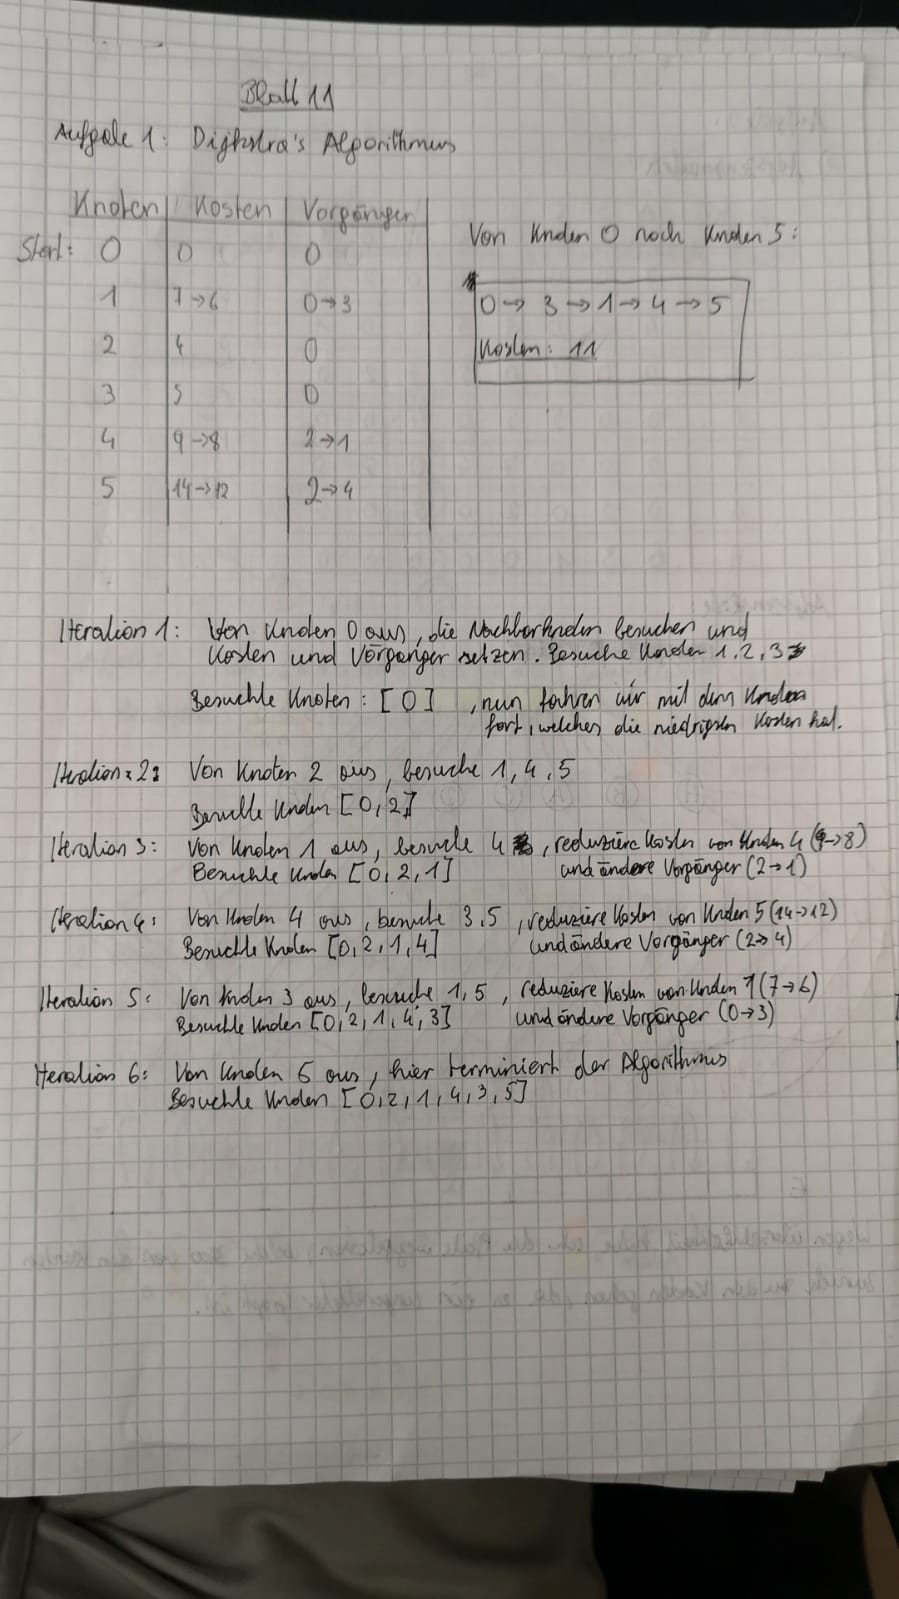 Blatt 11
Aufgabe 1: Dijkstra's Algorithmus
Knoten | Kosten | Vorgänger
Start: 0 | 0 | 0
1 | 7→6 | 0→3
2 | 4 | 0
3 | 5 | 0
4 | 9→8 | 2→1
5 | 14→12 | 2→4
Von Knoten 0 nach Knoten 5:
0→ 3→1→4→5
Kosten: 11
Iteration 1: Von Knoten 0 aus, die Nachbarknoten besuchen und
Kosten und Vorgänger setzen. Besuche Knoten 1,2,3
Besuchte Knoten: [0] , nun fahren wir mit dem Knoten
fort, welches die niedrigsten Kosten hat.
Iteration 2: Von Knoten 2 aus, besuche 1,4,5
Besuchte Knoten [0,2]
Iteration 3: Von Knoten 1 aus, besuche 4, reduziere Kosten von Knoten 4 (9→8)
Besuchte Knoten [0,2,1] und ändere Vorgänger (2→1)
Iteration 4: Von Knoten 4 aus, besuche 3,5, reduziere Kosten von Knoten 5 (14→12)
Besuchte Knoten [0,2,1,4] und ändere Vorgänger (2→4)
Iteration 5: Von Knoten 3 aus, besuche 1,5, reduziere Kosten von Knoten 1 (7→6)
Besuchte Knoten [0,2,1,4,3] und ändere Vorgänger (0→3)
Iteration 6: Von Knoten 5 aus, hier terminiert der Algorithmus
Besuchte Knoten [0,2,1,4,3,5]